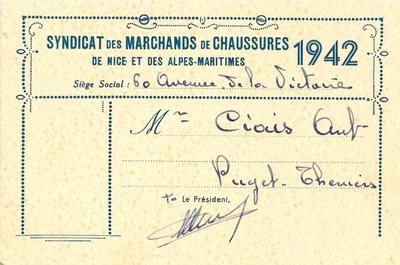 SYNDICAT DES MARCHANDS DE CHAUSSURES
DE NICE ET DES ALPES-MARITIMES
1942
Siège Social : 60 Avenue de la Victoire
Mr Ciais Ant-
Puget-Theniers
Le Président,